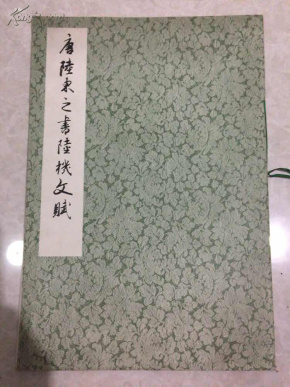 唐陸柬之書陸機文賦